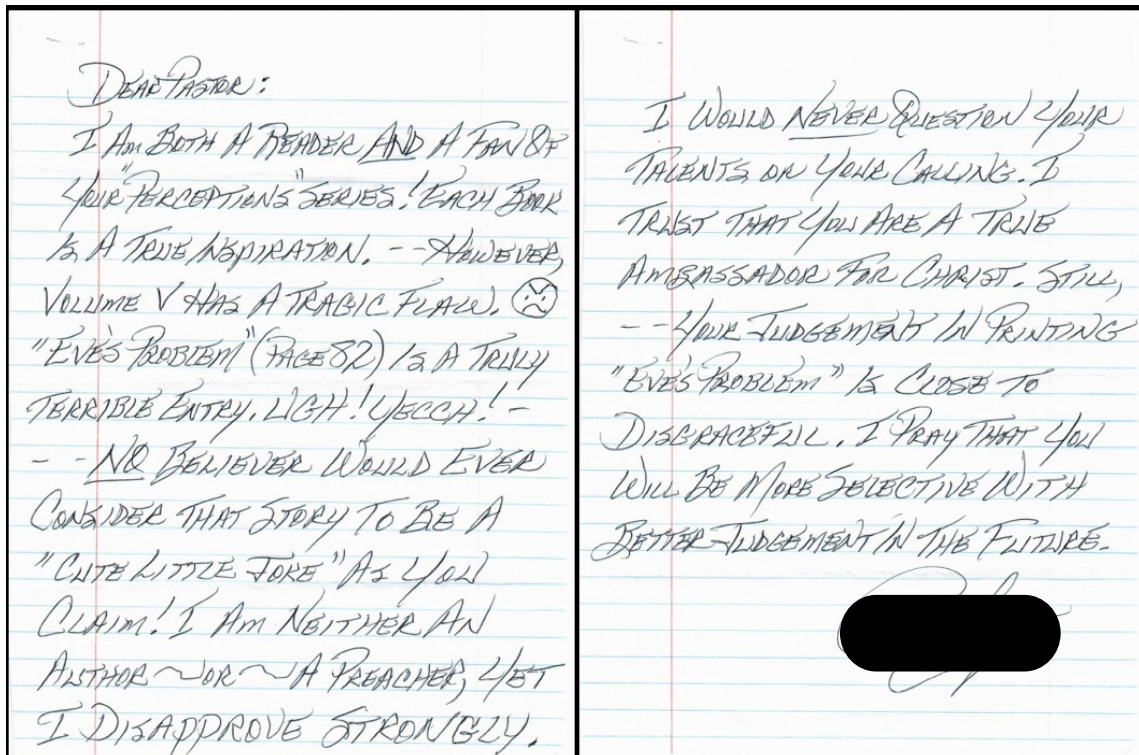 DEAR PASTOR:
I AM BOTH A READER AND A FAN OF
YOUR "PERCEPTIONS" SERIES! EACH BOOK
IS A TRUE INSPIRATION. -- HOWEVER,
VOLUME V HAS A TRAGIC FLAW.
"EVE'S PROBLEM" (PAGE 82) IS A TRULY
TERRIBLE ENTRY. UGH! YECCH! -
-- NO BELIEVER WOULD EVER
CONSIDER THAT STORY TO BE A
"CUTE LITTLE JOKE" AS YOU
CLAIM! I AM NEITHER AN
AUTHOR ~OR~ A PREACHER, YET
I DISAPPROVE STRONGLY.
I WOULD NEVER QUESTION YOUR
TALENTS OR YOUR CALLING. I
TRUST THAT YOU ARE A TRUE
AMBASSADOR FOR CHRIST. STILL,
-- YOUR JUDGEMENT IN PRINTING
"EVE'S PROBLEM" IS CLOSE TO
DISGRACEFUL. I PRAY THAT YOU
WILL BE MORE SELECTIVE WITH
BETTER JUDGEMENT IN THE FUTURE.